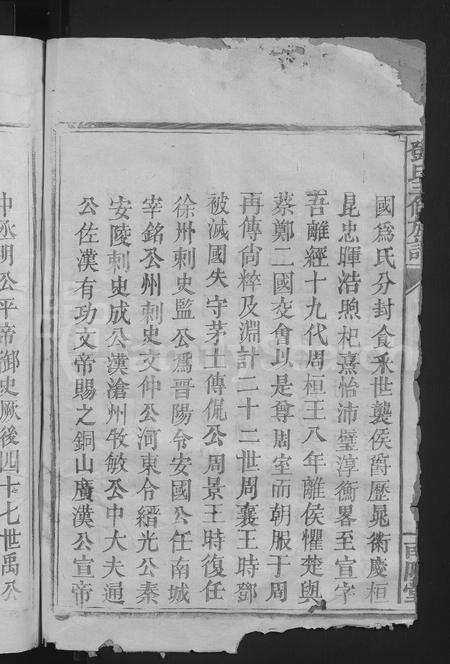 國為氏分封食釆世襲侯爵歷晁術慶桓
昆忠暉浩煦杞熹怡沛璧淳衡畧至宣字
吾離經十九代周桓王八年離侯懼楚與
蔡鄭二國交會以是尊周室而朝服于周
再傳尚粹及淵計二十二世周襄王時鄧
被滅國失守茅土傳侃公周景王時復任
徐州刺史監公爲晋陽令安國公任南城
宰銘公州刺史文仲公河東令縉光公秦
安陵刺史成公漢滄州牧敏公中大夫通
公佐漢有功文帝賜之銅山廣漢公宣帝
中丞明公平帝御史厥後四十七世禹公
鄧氏三修族譜
南陽堂